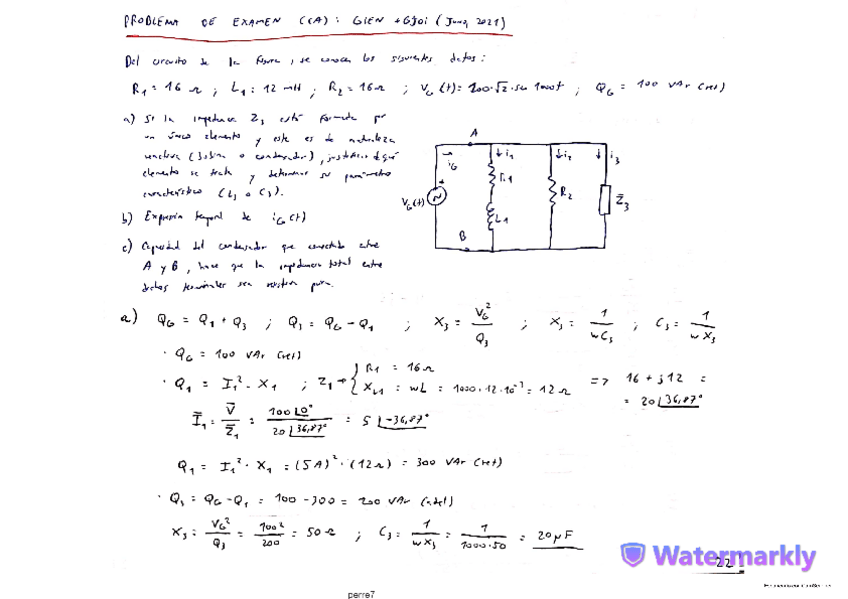 PROBLEMA DE EXAMEN (CA): GIEN + GJoi (Junio, 2021)
Del circuito de la figura, se conocen los siguientes datos:
R1 = 16 Ω ; L1 = 12 mH ; R2 = 16 Ω ; VG(t) = 100·√2·sen 1000t ; QG = 100 VAr (ret)
a) Si la impedancia Z3 está formada por
un único elemento y este es de naturaleza
reactiva (bobina o condensador), justificar de qué
elemento se trata y determinar su parámetro
característico (L3 o C3).
b) Expresión temporal de iG(t)
c) Capacidad del condensador que conectado entre
A y B, hace que la impedancia total entre
dichos terminales sea resistiva pura.
A
iG
i1
i2
i3
R1
R2
Z̄3
VG(t)
L1
B
a) QG = Q1 + Q3 ; Q3 = QG - Q1 ; X3 = VG²/Q3 ; X3 = 1/wC3 ; C3 = 1/wX3
· QG = 100 VAr (ret)
· Q1 = I1² · X1 ; Z1 → { R1 = 16 Ω
XL1 = wL = 1000·12·10⁻³ = 12 Ω => 16 + j12 =
= 20∠36,87°
Ī1 = V̄/Z̄1 = 100∠0°/20∠36,87° = 5∠-36,87°
Q1 = I1² · X1 = (5A)² · (12Ω) = 300 VAr (ret)
· Q3 = QG - Q1 = 100 - 300 = 200 VAr (adel)
X3 = VG²/Q3 = 100²/200 = 50 Ω ; C3 = 1/wX3 = 1/1000·50 = 20 µF
Watermarkly
22
perre7